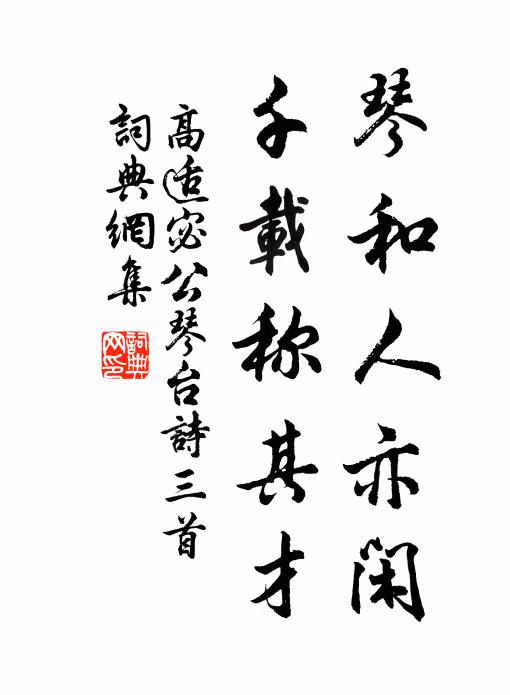 琴和人亦闲
千載称其才
高适宓公琴台詩三首
詞典網集
詞典网印